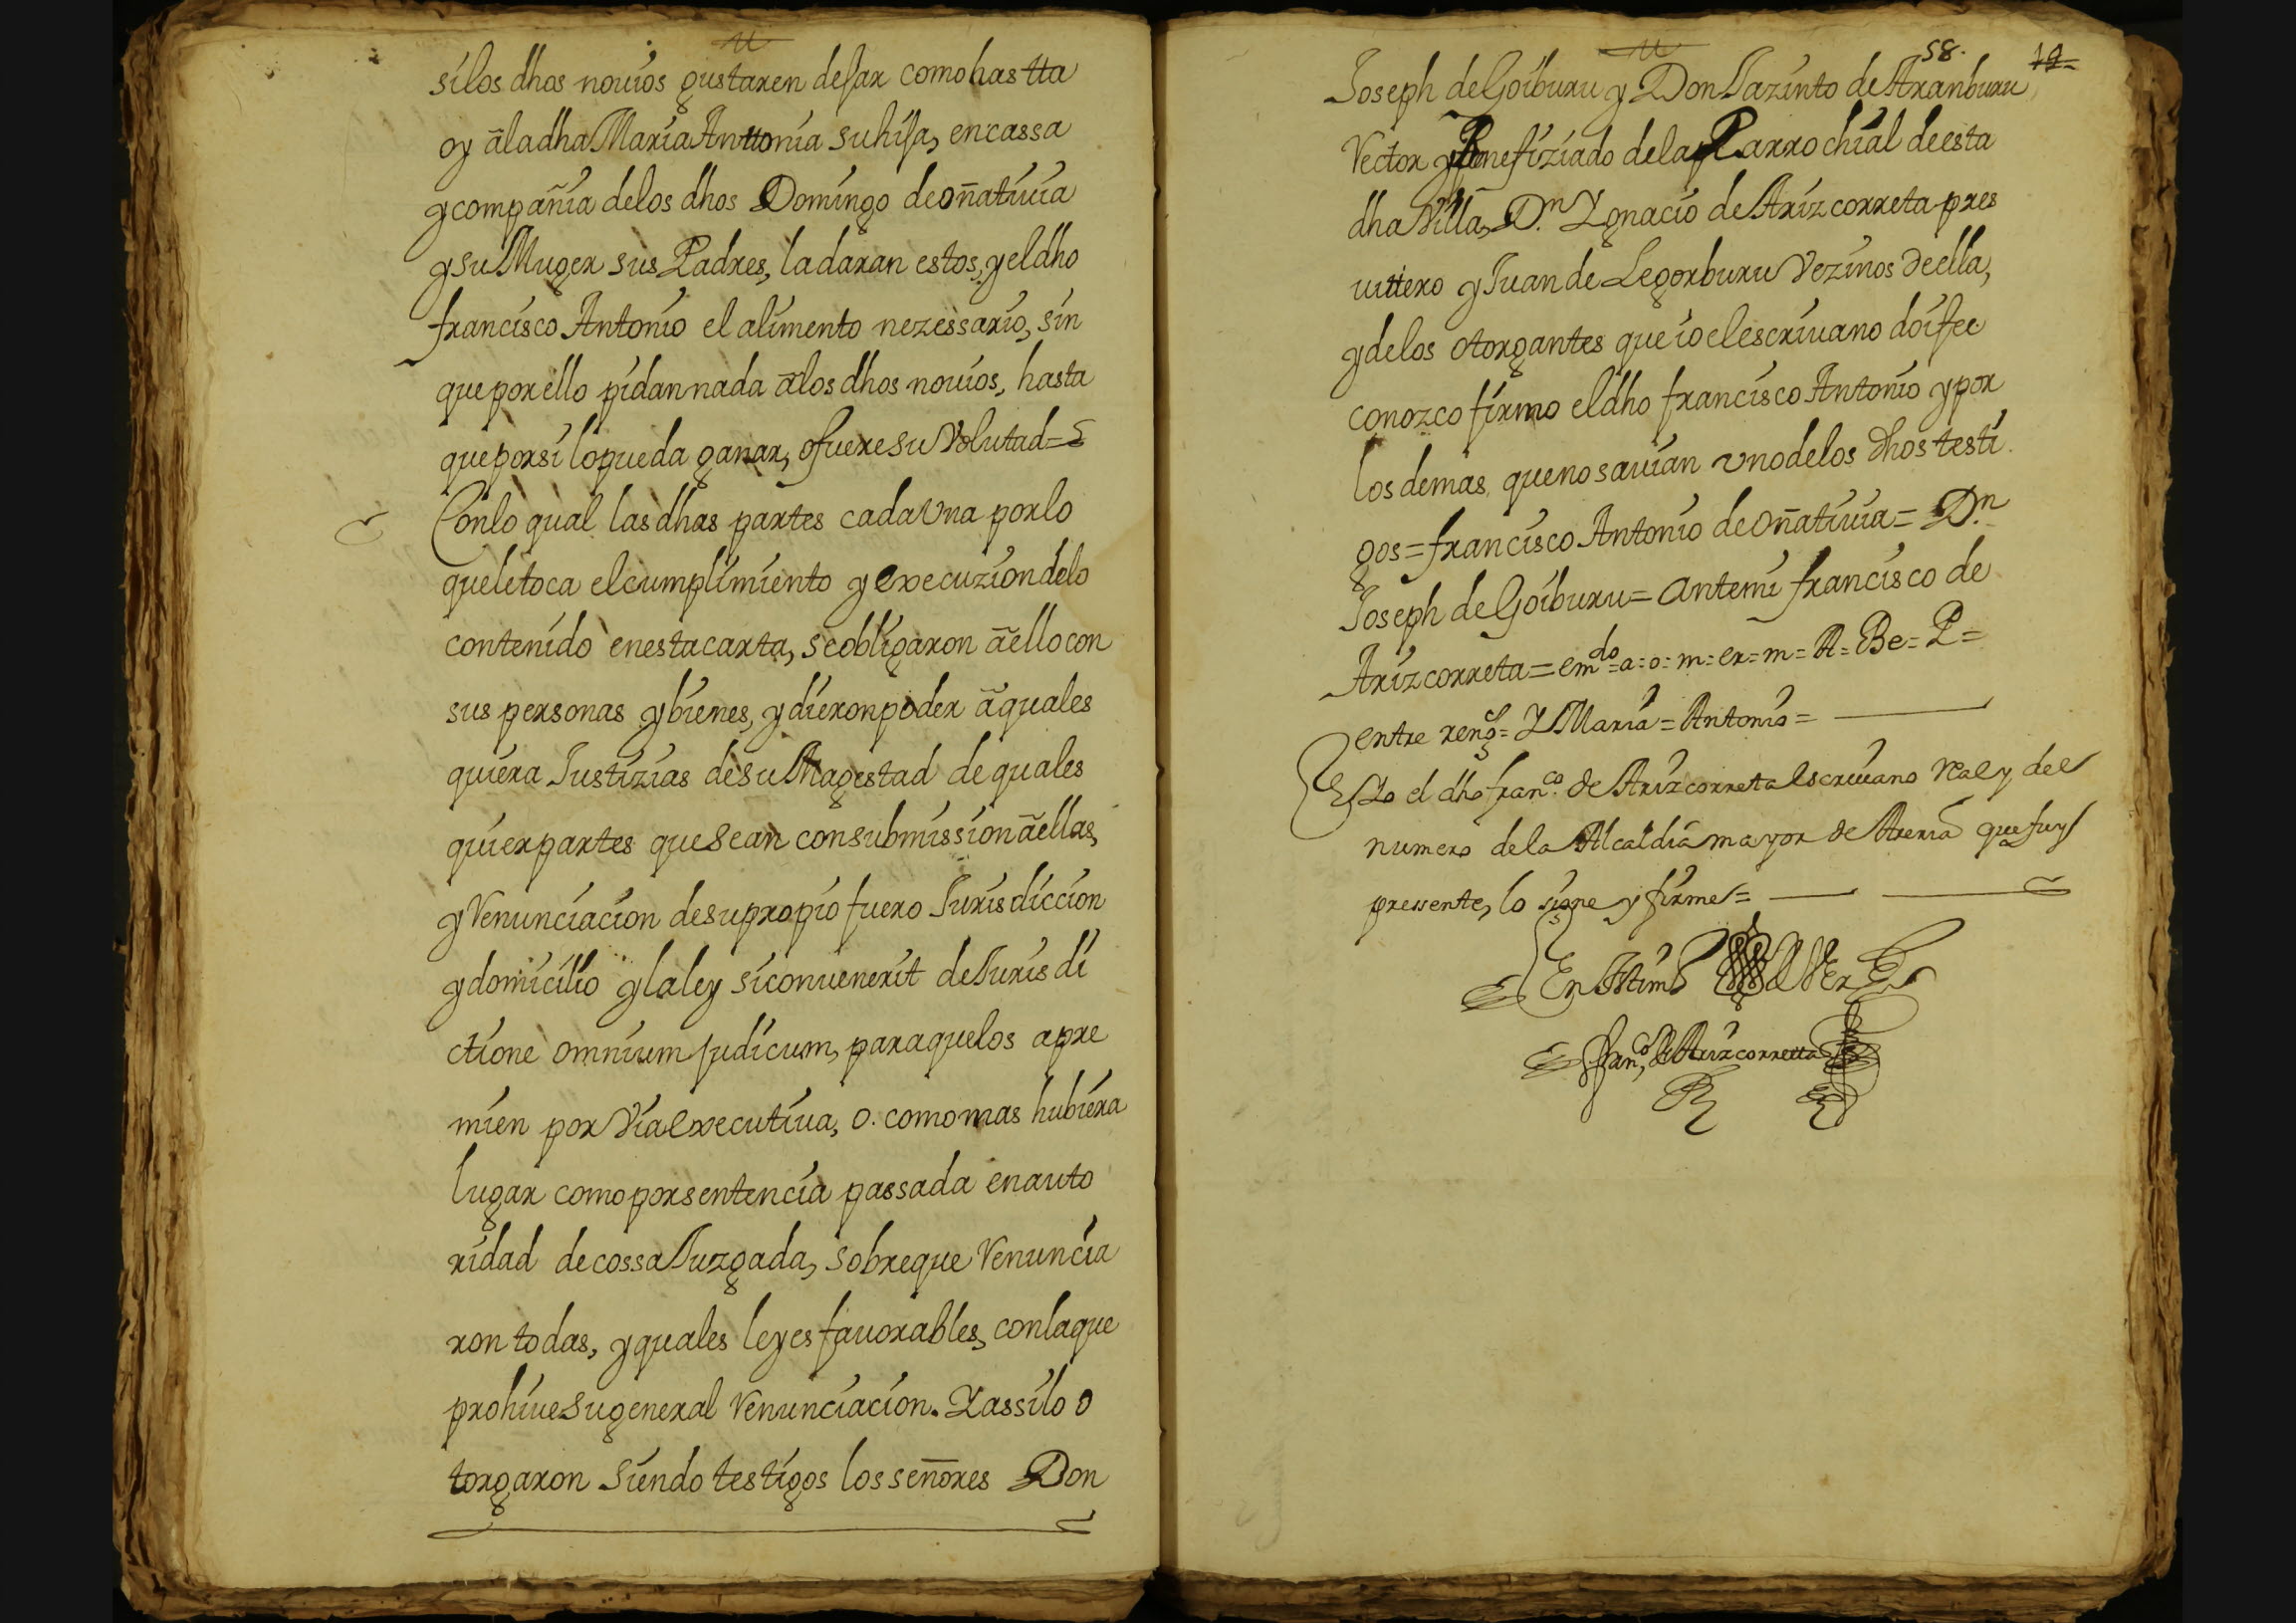 si los dhos nouios gustaren dejar como has tta
oy â la dha Maria Anttonia su hija, en cassa
y compañia de los dhos Domingo de oñatiuia
y su Muger sus Padres, la daran estos, y el dho
francisco Antonio el alimento nezessario, sin
que por ello pidan nada â los dhos nouios, hasta
que por si lo pueda ganar, o fuere su Volutad =
Con lo qual las dhas partes cada Vna por lo
que le toca el cumplimiento y execuzion de lo
contenido en esta carta, se obligaron â ello con
sus personas y bienes, y dieron poder â quales
quiera Justizias de su Magestad de quales
quier partes que sean con submission â ellas,
y Renunciacion de su propio fuero Jurisdiccion
y domicilio y la ley si conuenerit de Juris di
ctione omnium judicum, para que los apre
mien por Via executiua, o. como mas hubiera
lugar como por sentencia passada en auto
ridad de cossa Juzgada, sobre que Renuncia
ron todas, y quales leyes fauorables, con la que
prohiue su general Renunciacion. Y assi lo o
torgaron siendo testigos los señores Don
58.
19
Joseph de Goiburu y Don Jazinto de Aranburu
Rector y Benefiziado de la Parrochial de esta
dha Villa, D.n Ygnacio de Arizcorreta pres
uittero y Juan de Legorburu Vezinos de ella,
y de los otorgantes que io el escriuano doi fee
conozco firmo el dho francisco Antonio y por
los demas que no sauian vno de los dhos testi
gos = francisco Antonio de oñatiuia = D.n
Joseph de Goiburu = ante mi francisco de
Arizcorreta = em.do = a = o = m = er = m = A = Be = P =
entre reng.s = Y Maria = Antonio =
Yo el dho fran.co de Arizcorreta escriuano Real y del
numero de la Alcaldia mayor de Areria que fuy
pressente, lo signe y firme =
En Testim.o de Ver.d
Fran.co de Arizcorretta